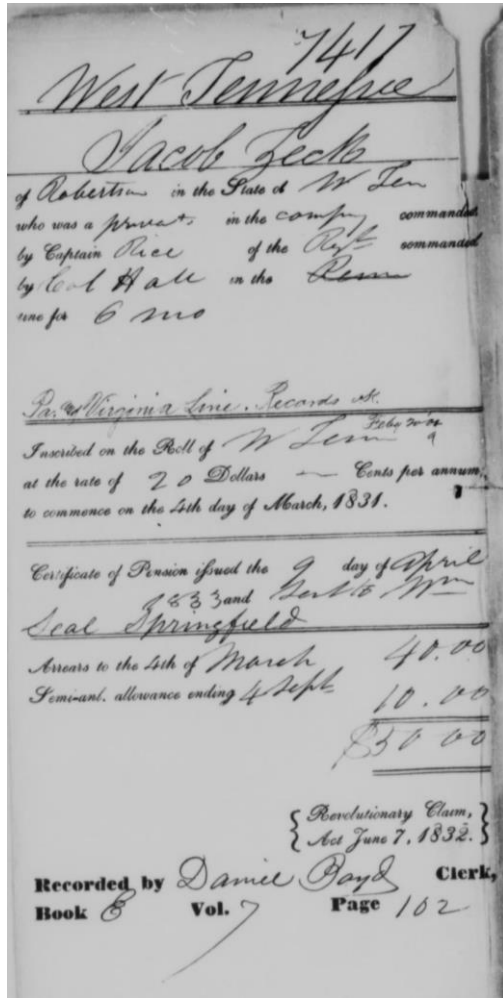 7417
West Tennessee
Jacob Zeck
of Robertson in the State of W Ten
who was a private in the company commanded
by Captain Rice of the Regt commanded
by Col Hall in the
Line for 6 mo
Pa. not Virginia Line. Records
Inscribed on the Roll of W Tenn
at the rate of 20 Dollars — Cents per annum,
to commence on the 4th day of March, 1831.
Certificate of Pension issued the 9 day of April
1833 and Sent to Wm
Seal Springfield
Arrears to the 4th of March 40.00
Semi-anl. allowance ending 4 Sept 10.00
$50 00
Revolutionary Claim,
Act June 7, 1832.
Recorded by Daniel Boyd Clerk,
Book E Vol. 7 Page 102